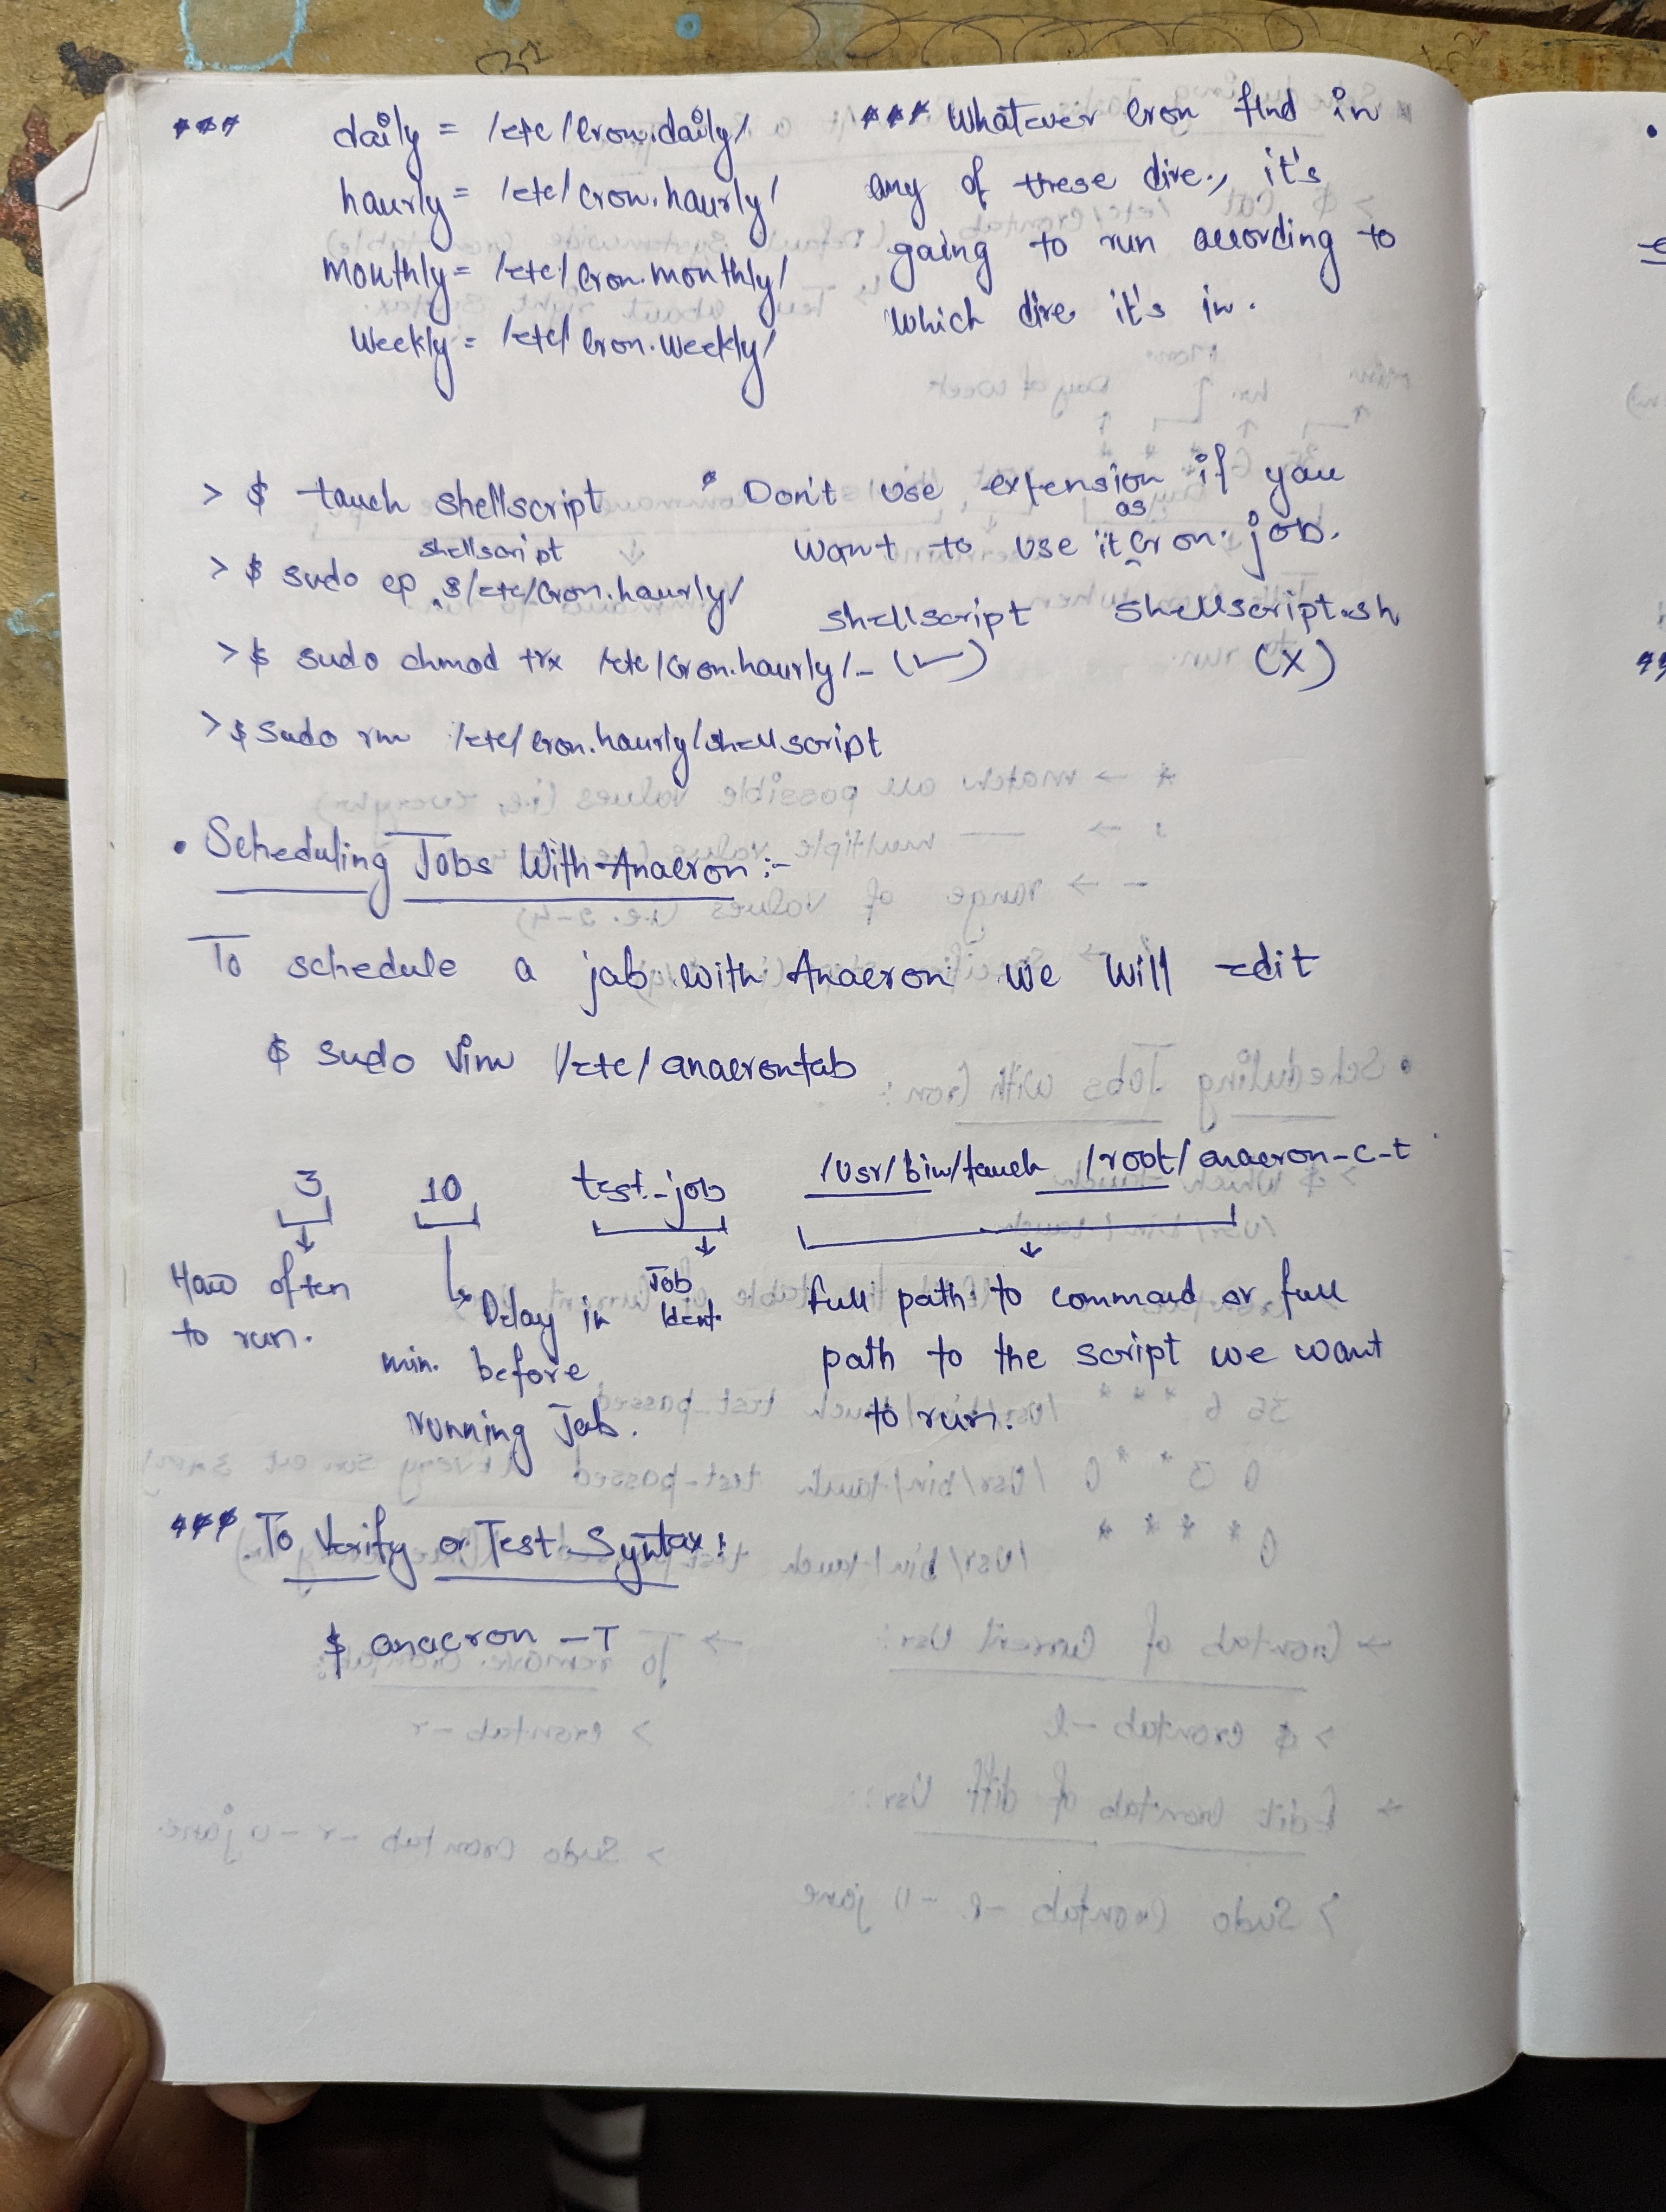 *** daily = /etc/cron.daily/
hourly = /etc/cron.hourly/
monthly = /etc/cron.monthly/
Weekly = /etc/cron.weekly/
*** Whatever cron find in
any of these dire., it's
going to run according to
which dire it's in.
> $ touch shellscript
> $ sudo cp shellscript /etc/cron.hourly/
> $ sudo chmod +rx /etc/cron.hourly/-
> $ sudo rm /etc/cron.hourly/shellscript
* Don't use extension if you
want to use it as cron job.
shellscript shellscript.sh
(✓) (X)
• Scheduling Jobs With Anacron :-
To schedule a job with Anacron we will edit
$ sudo vim /etc/anacrontab
3 10 test-job /usr/bin/touch /root/anacron-c-t
How often
to run.
Delay in
min. before
running Job.
Job
Ident.
full path to command or full
path to the script we want
to run.
*** To Verify or Test Syntax :
$ anacron -T